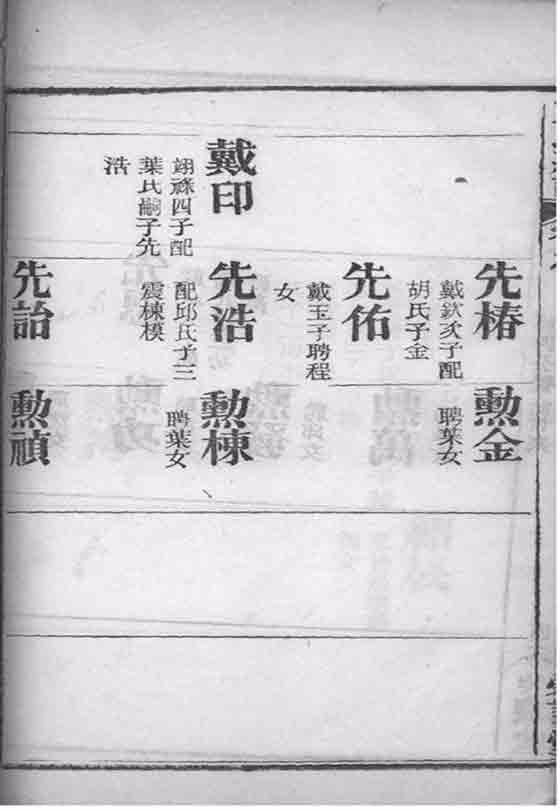 先椿
戴欽次子配
胡氏子金
勲金
聘葉女
先佑
戴玉子聘程
女
戴印
翊祿四子配
葉氏嗣子先
浩
先浩
配邱氏子三
震棟模
勲棟
聘葉女
先詒
勲禎